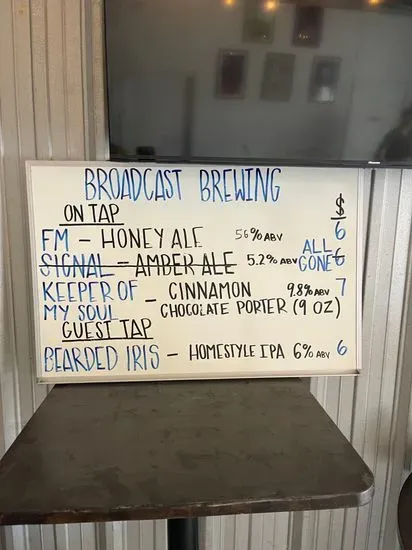 BROADCAST BREWING
ON TAP
$
FM - HONEY ALE 5.6% ABV 6
SIGNAL - AMBER ALE 5.2% ABV ALL GONE 6
KEEPER OF MY SOUL - CINNAMON 9.8% ABV 7
CHOCOLATE PORTER (9 OZ)
GUEST TAP
BEARDED IRIS - HOMESTYLE IPA 6% ABV 6